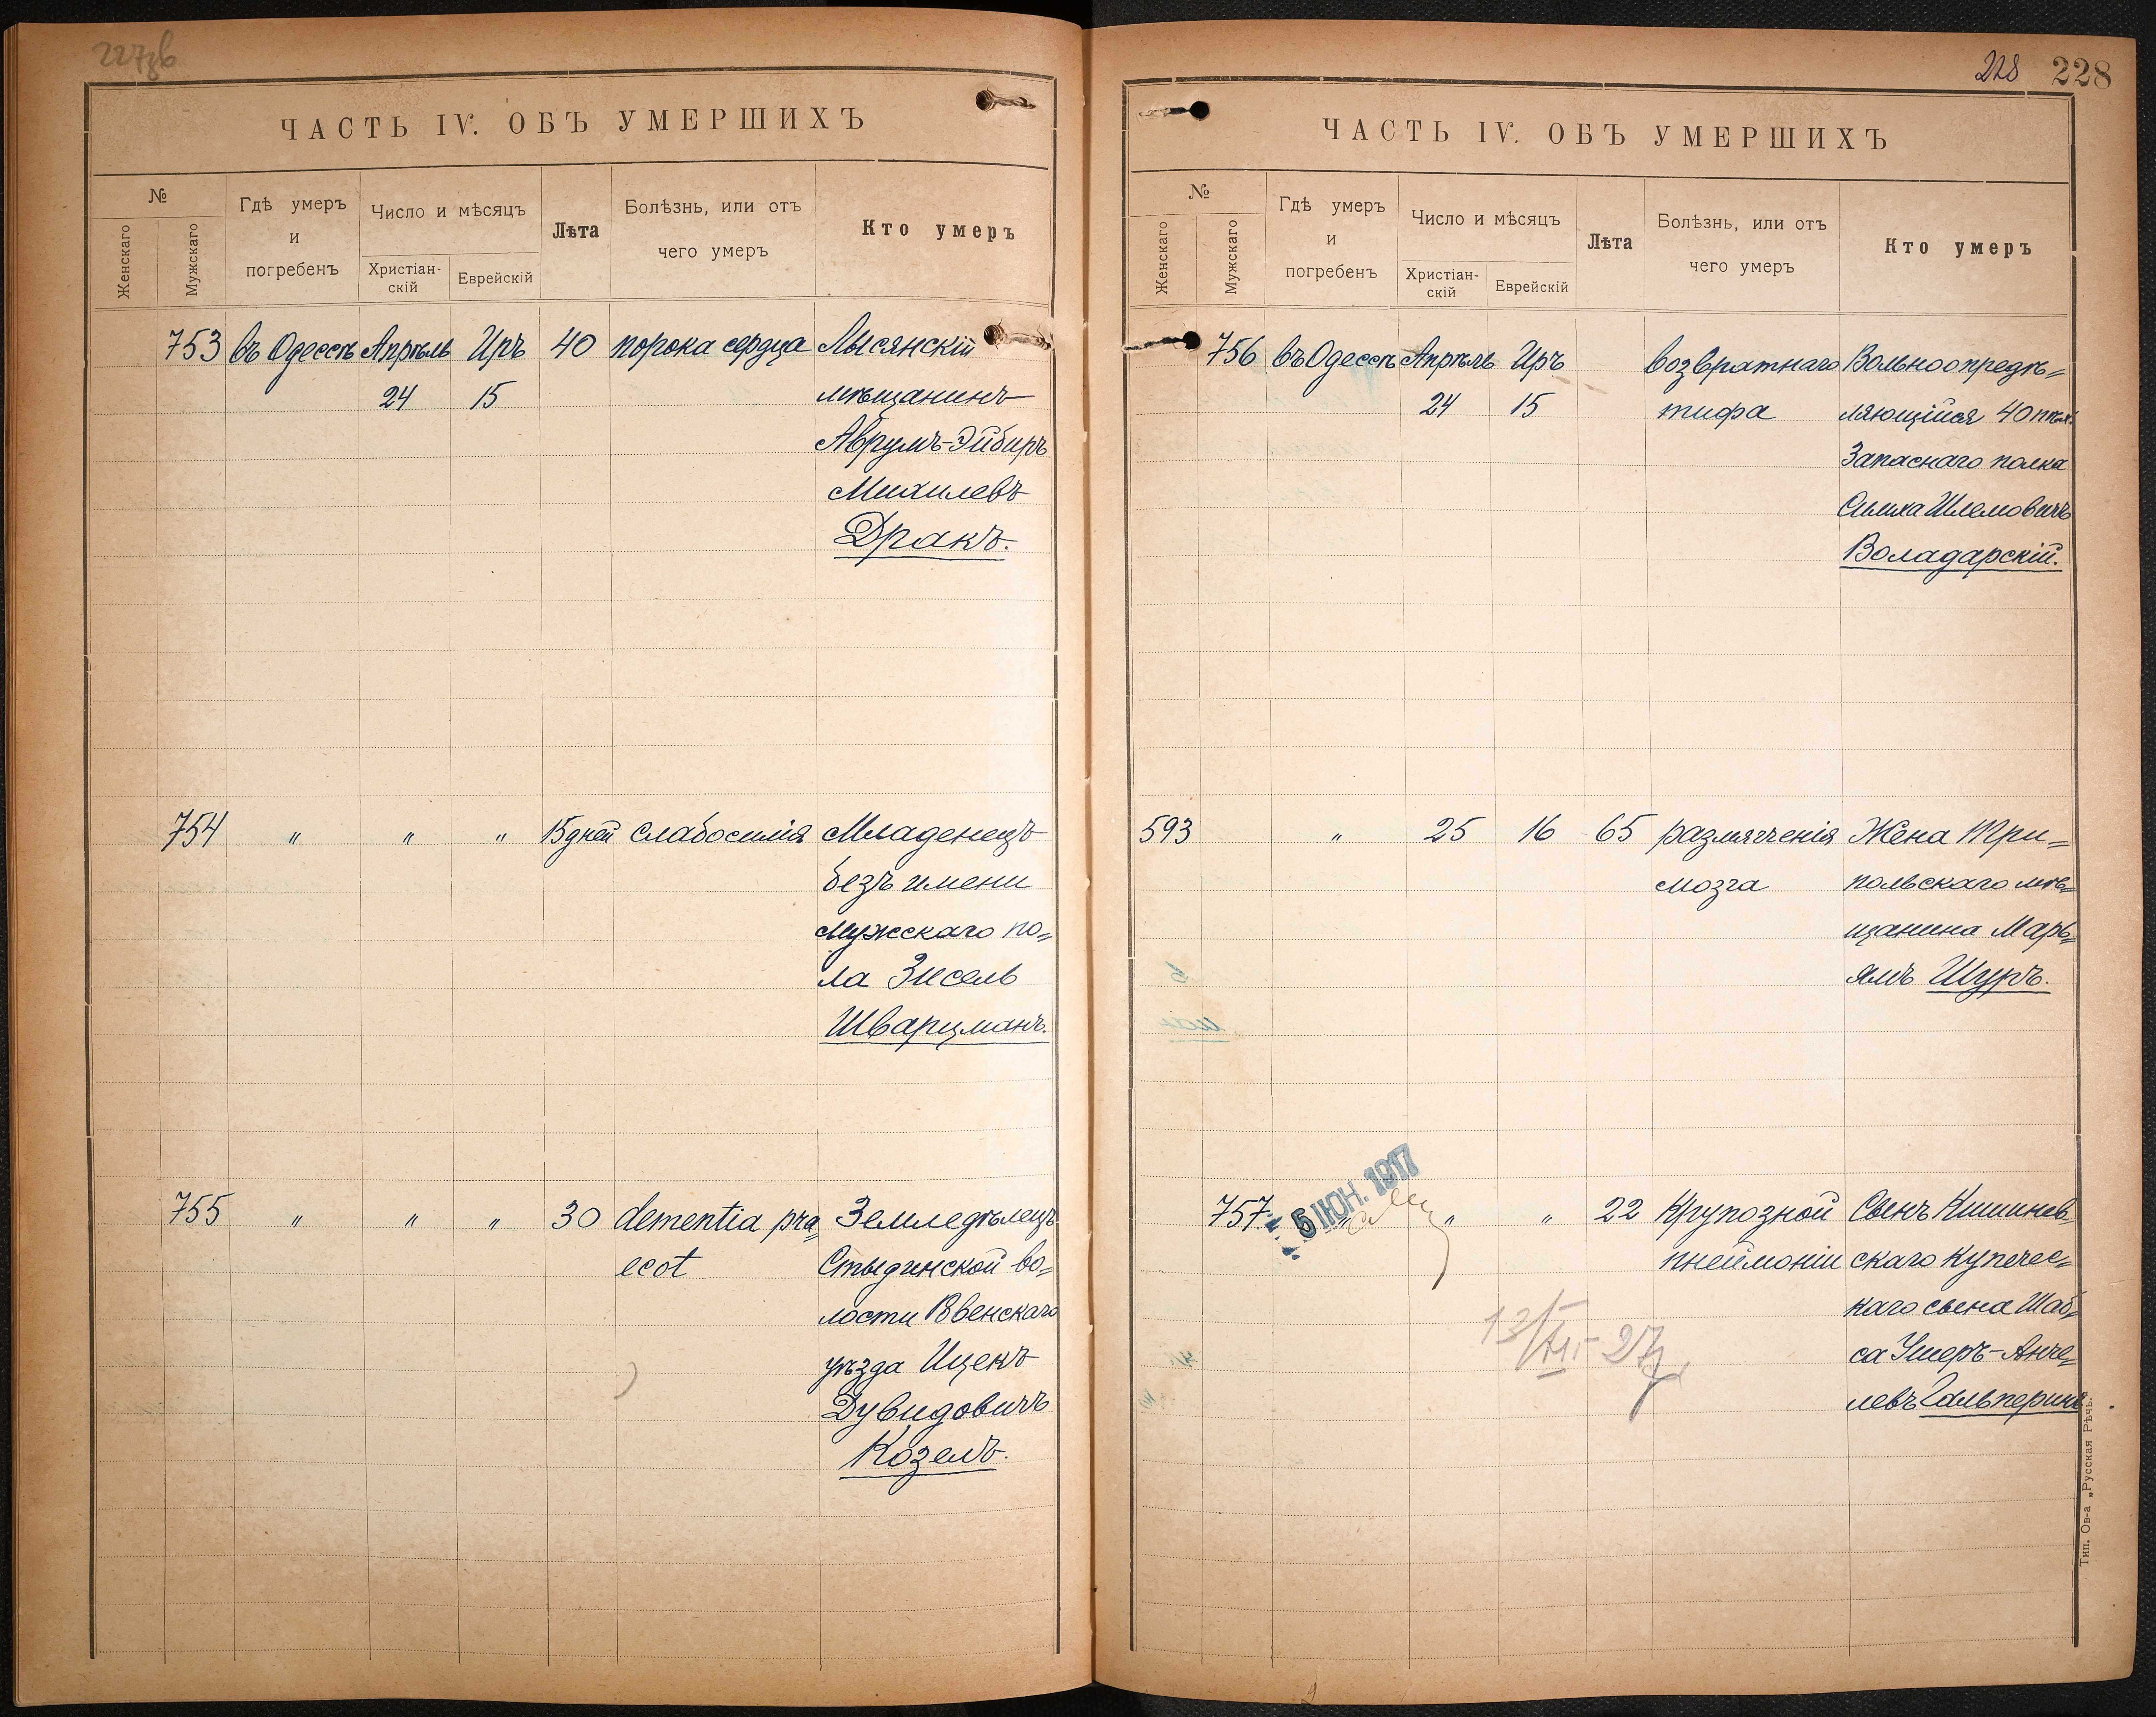 227об
ЧАСТЬ IV. ОБЪ УМЕРШИХЪ
№
Женскаго
Мужскаго
Гдѣ умеръ
и
погребенъ
Число и мѣсяцъ
Христіан-
скій
Еврейскій
Лѣта
Болѣзнь, или отъ
чего умеръ
Кто умеръ
753 въ Одессѣ Апрѣль Иръ 40 порока сердца Лысянскій
24 15 мѣщанинъ
Аврумъ-Эйбиръ
Михилевъ
Дракъ.
754 " " " 15 дней слабосилія Младенецъ
безъ имени
мужескаго по=
ла Зисель
Шварцманъ.
755 " " " 30 dementia pra Земледѣлецъ
ecot Стыдинской во=
лости Ровенскаго
уѣзда Ицекъ
Дувидовичъ
Козелъ.
228 228
ЧАСТЬ IV. ОБЪ УМЕРШИХЪ
№
Женскаго
Мужскаго
Гдѣ умеръ
и
погребенъ
Число и мѣсяцъ
Христіан-
скій
Еврейскій
Лѣта
Болѣзнь, или отъ
чего умеръ
Кто умеръ
756 въ Одессѣ Апрѣль Иръ возвратнаго Вольноопредѣ=
24 15 тифа ляющійся 40
Запаснаго полка
Шлемовичъ
Воладарскій.
593 " 25 16 65 размягченія Жена Три=
мозга польскаго мѣ=
щанина Марь=
ямъ Шуръ.
757 " " " 22 Крупозной Сынъ Кишинев=
пнеймоніи скаго купечес=
каго сына Шаб=
са Ушеръ-Анче=
левъ Гальперинъ
5 ІЮН. 1917
Тип. Ов-а „Русская Рѣчь“.